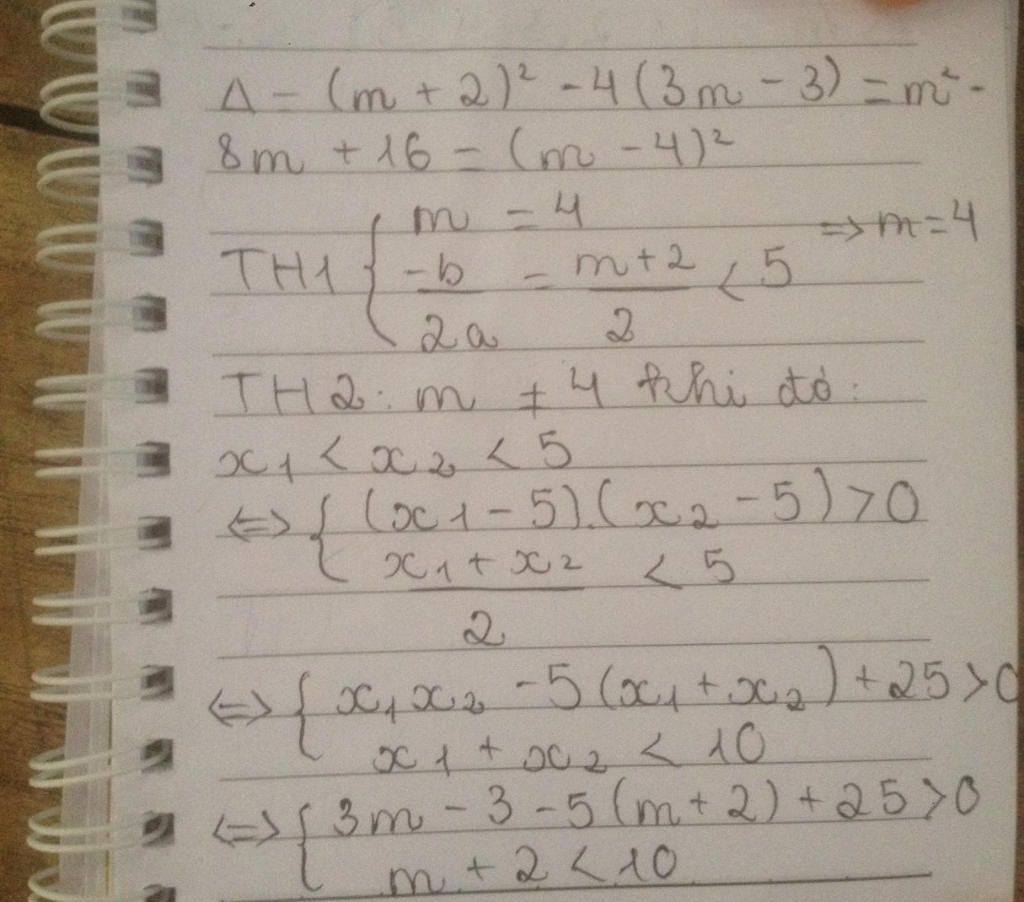 Δ = (m + 2)² - 4(3m - 3) = m² -
8m + 16 = (m - 4)²
m = 4
TH1 { -b/2a = m+2/2 < 5 => m = 4
TH2: m ≠ 4 khi đó:
x₁ < x₂ < 5
<=> { (x₁ - 5).(x₂ - 5) > 0
x₁ + x₂ / 2 < 5
<=> { x₁x₂ - 5(x₁ + x₂) + 25 > 0
x₁ + x₂ < 10
<=> { 3m - 3 - 5(m + 2) + 25 > 0
m + 2 < 10